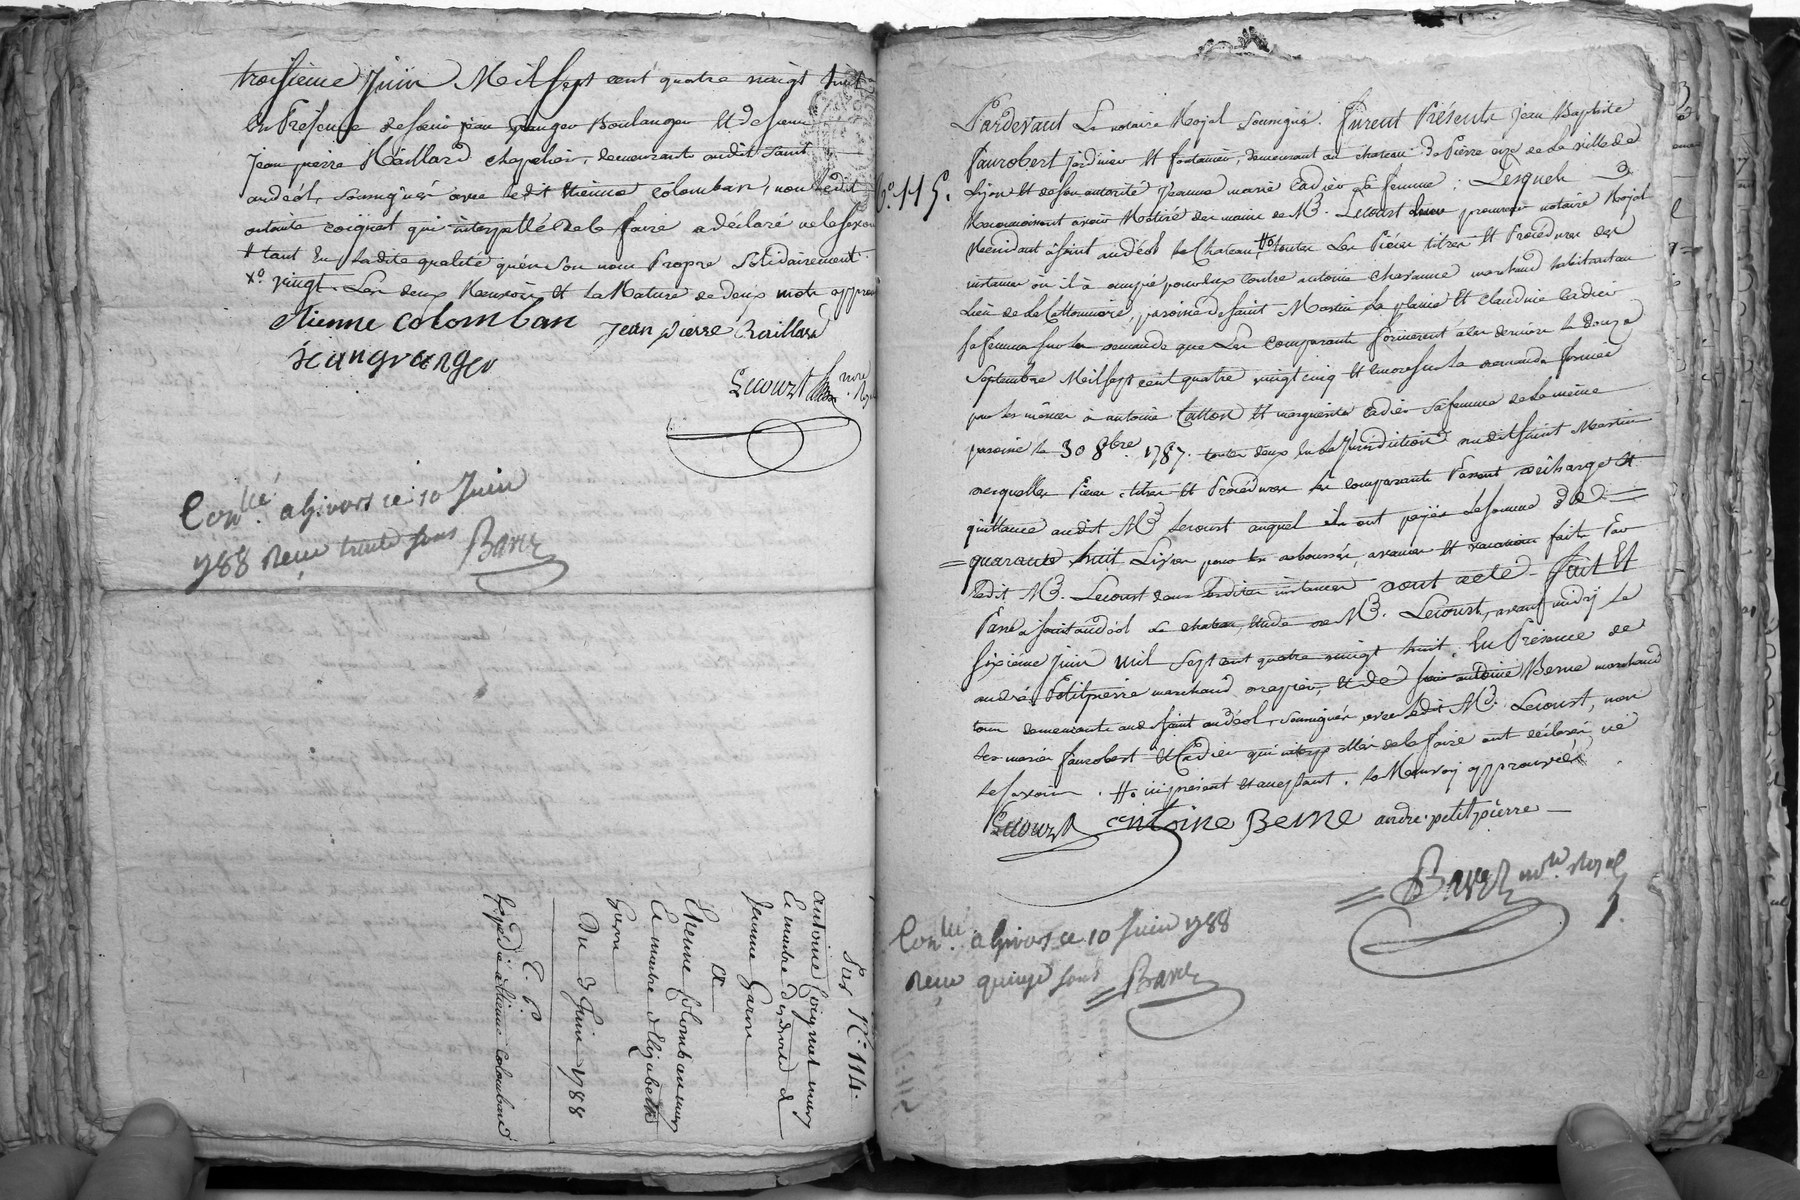 troisieme Juin Mil sept cent quatre vingt huit
En Présence de sieur jean Granger Boulanger Et de sieur
jean pierre Raillard chapelier, demeurants audit Saint
andéol, soussignés avec ledit Etienne Colomban, non ledit
antoine coignet qui interpellé de le faire a déclaré ne le savoir
+ tant En ladite qualité qu'en son nom Propre Solidairement
Xo vingt. Les deux Renvois Et la Rature de deux mots approuvés
etienne colomban jean pierre Raillard
jean granger
Lecourt nore Royal
Conllé a Givors ce 10 Juin
1788 Reçu trente sous Baret
Sur No 114.
antoine Coignet mary
Et maitre des droits de
Jeanne Garon
Et
Etienne Colomban mary
Et maitre d'Elizabeth
Garon
Du 3 Juin 1788
E. P.
Expédié à Etienne Colomband
No 115.
Pardevant Le notaire Royal soussigné. Furent Présents Jean Baptiste
faurobert jardinier Et fontainier, demeurant au chateau de Pierre cize de la ville de
Lyon Et de son autorité Jeanne marie Cadier sa femme ; Lesquels
Reconnoissent avoir Rétiré des mains de Me. Lecourt notaire Royal
Résidant à saint andéol le Chateau, #o toutes Les Pièces titres Et Procédures des
instances ou il à occupé pour eux contre antoine Chavanne marchand habitant au
Lieu de la Cattonnière, paroisse de Saint Martin la plaine Et claudine Cadier
sa femme sur la demande que Les comparants formerent à la derniere le douze
Septembre Mil sept cent quatre vingt cinq Et encore sur la demande formée
par les mêmes à antoine Catton Et marguerite Cadier sa femme de la même
paroisse le 30 8bre. 1787. toutes deux En la Jurisdiction dudit saint Martin
desquelles Pièces, titres Et Procédures les comparants Passent décharge Et
quittance audit Me Lecourt auquel ils ont payés la somme de
quarante huit Livres pour les déboursés, avances Et vacations faits Par
ledit Me. Lecourt dans lesdites instances dont acte. Fait Et
Passé a saint andéol le chateau, Etude de Me. Lecourt, avant midy Le
sixieme Juin mil sept cent quatre vingt huit. En Présence de
andré Petitpierre marchand drapier, Et de sieur antoine Berne marchand
tous demeurants aud. saint andéol, soussignés avec ledit Me. Lecourt, non
les mariés faurobert Et Cadier qui interpellés de le faire ont déclarés ne
le savoir. #o icy présent Et acceptant. le Renvoy approuvé
Lecourt antoine Berne andre petitpierre
Baret nore. Royal
Conllé a Givors ce 10 Juin 1788
Reçu quinze sous Baret